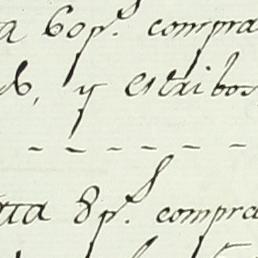 a 60 p.ˢ compra
, y estribos
- - - - - -
rta 8 p.ˢ compra